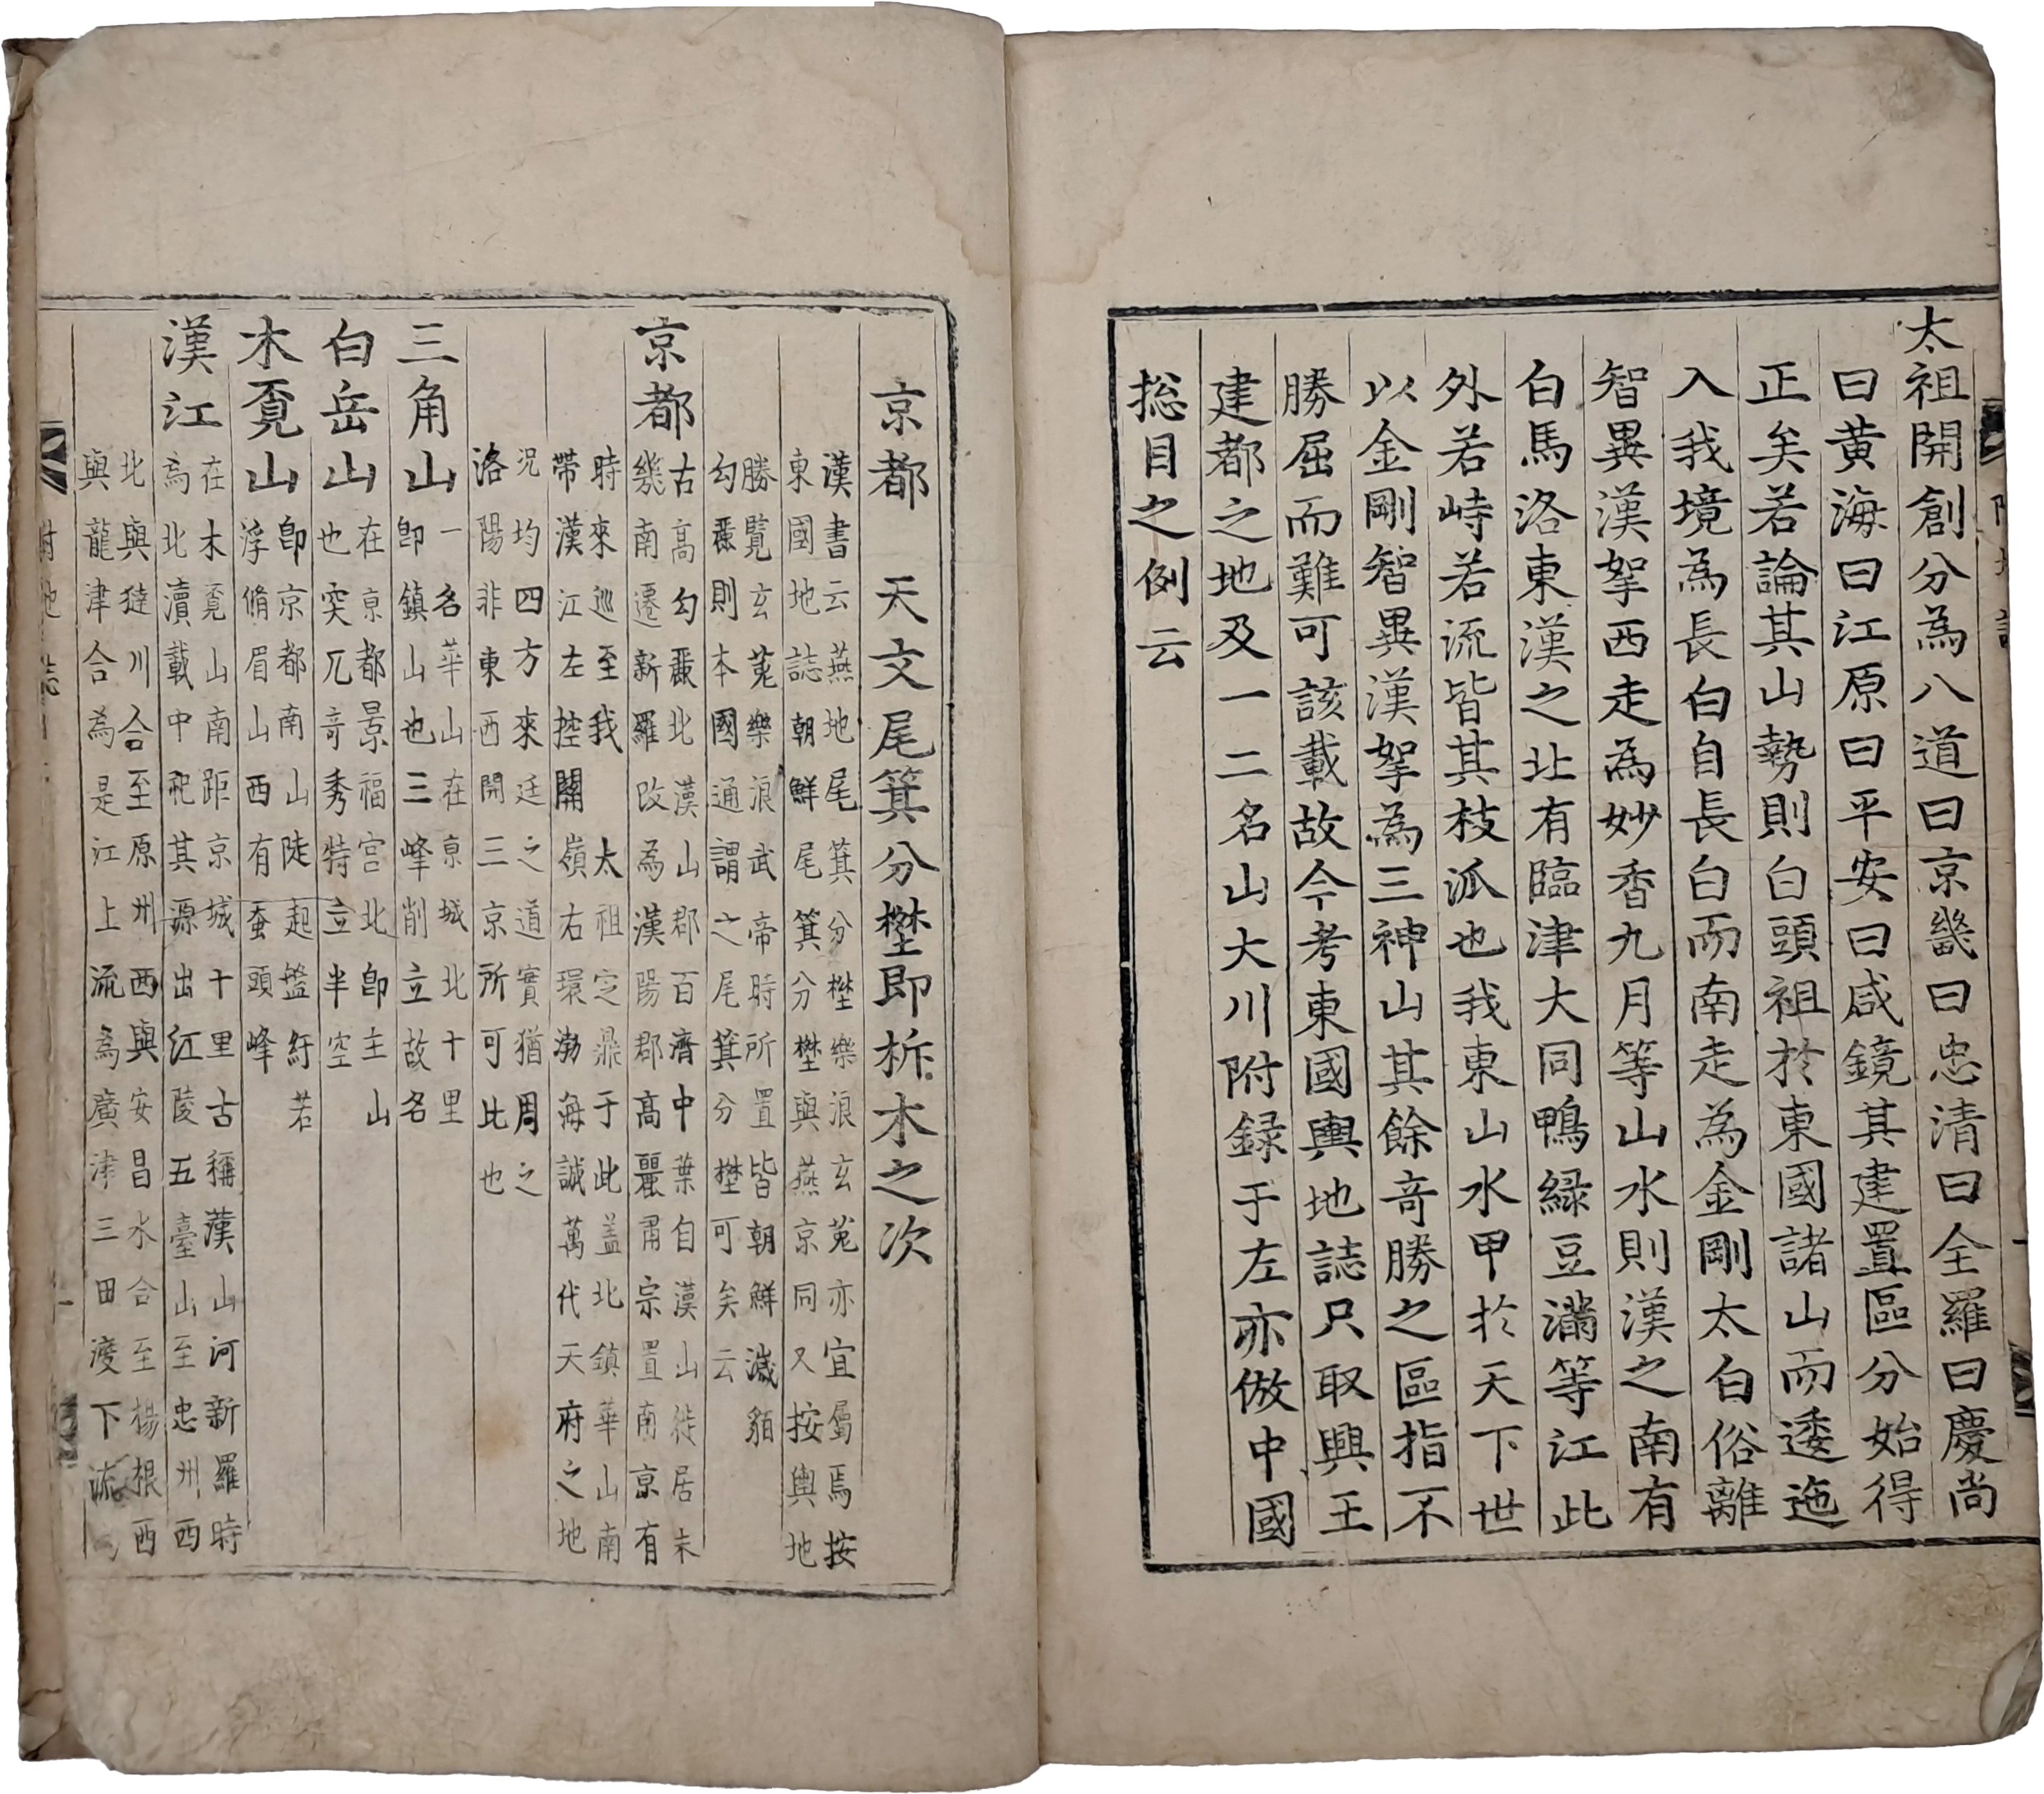 太祖開創分為八道曰京畿曰忠清曰全羅曰慶尚
曰黃海曰江原曰平安曰咸鏡其建置區分始得
正矣若論其山勢則白頭祖於東國諸山而逶迤
入我境為長白自長白而南走為金剛太白俗離
智異漢挐西走為妙香九月等山水則漢之南有
白馬洛東漢之北有臨津大同鴨綠豆滿等江此
外若峙若流皆其枝派也我東山水甲於天下世
以金剛智異漢挐為三神山其餘奇勝之區指不
勝屈而難可該載故今考東國輿地誌只取興王
建都之地及一二名山大川附録于左亦倣中國
捴目之例云
京都 天文尾箕分壄即析木之次
漢書云燕地尾箕分壄樂浪玄菟亦宜屬焉按
東國地誌朝鮮尾箕分壄與燕京同又按輿地
勝覧玄菟樂浪武帝時所置皆朝鮮濊貊
勾麗則本國通謂之尾箕分壄可矣云
京都
古高勾麗北漢山郡百濟中葉自漢山徙居未
幾南遷新羅改為漢陽郡高麗肅宗置南京有
時來巡至我 太祖定鼎于此盖北鎮華山南
帶漢江左控關嶺右環渤海誠萬代天府之地
况均四方來廷之道實猶周之
洛陽非東西開三京所可比也
三角山
一名華山在京城北十里
即鎮山也三峰削立故名
白岳山
在京都景福宮北即主山
也突兀奇秀特立半空
木覓山
即京都南山陡起盤紆若
浮脩眉山西有蚕頭峰
漢江
在木覓山南距京城十里古稱漢山河新羅時
為北瀆載中祀其源出江陵五臺山至忠州西
北與㺚川合至原州西與安昌水合至楊根西
與龍津合為是江上流為廣津三田渡下流
附地誌